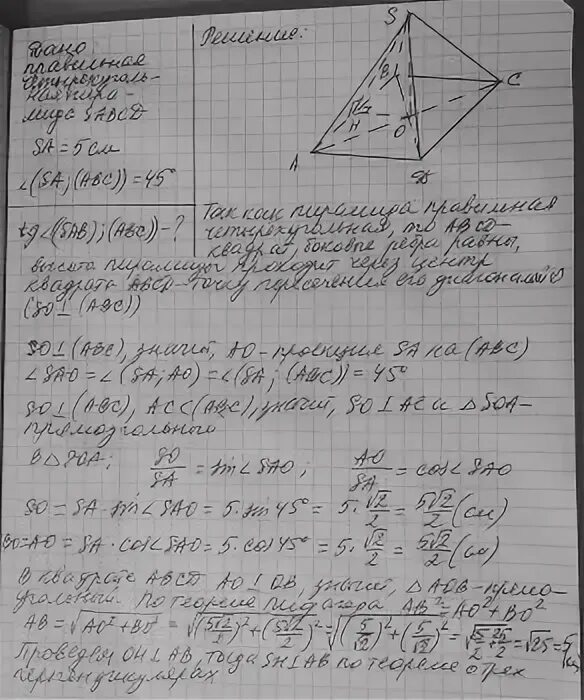 Дано
Решение:
правильная
четырехуголь-
ная пира-
мида SABCD
SA = 5 см
∠(SA; (ABC)) = 45°
tg∠((SAB); (ABC)) - ?
S
B
C
H
O
A
D
Так как пирамида правильная
четырехугольная, то ABCD-
квадрат, боковые ребра равны,
высота пирамиды проходит через центр
квадрата ABCD - точку пересечения его диагоналей O
(SO⊥(ABC))
SO⊥(ABC), значит, AO - проекция SA на (ABC)
∠SAO = ∠(SA; AO) = ∠(SA; (ABC)) = 45°
SO⊥(ABC), AC⊂(ABC), значит, SO⊥AC и △SOA-
прямоугольный
В △SOA; SO/SA = sin∠SAO; AO/SA = cos∠SAO
SO = SA·sin∠SAO = 5·sin45° = 5·√2/2 = 5√2/2 (см)
BO=AO = SA·cos∠SAO = 5·cos45° = 5·√2/2 = 5√2/2 (см)
В квадрате ABCD AO⊥OB, значит, △AOB - прямо-
угольный. По теореме Пифагора AB² = AO² + BO²
AB = √(AO² + BO²) = √((5√2/2)² + (5√2/2)²) = √((5/√2)² + (5/√2)²) = √(25/2 + 25/2) = √25 = 5 (см)
Проведем OH⊥AB, тогда SH⊥AB по теореме о трех
перпендикулярах